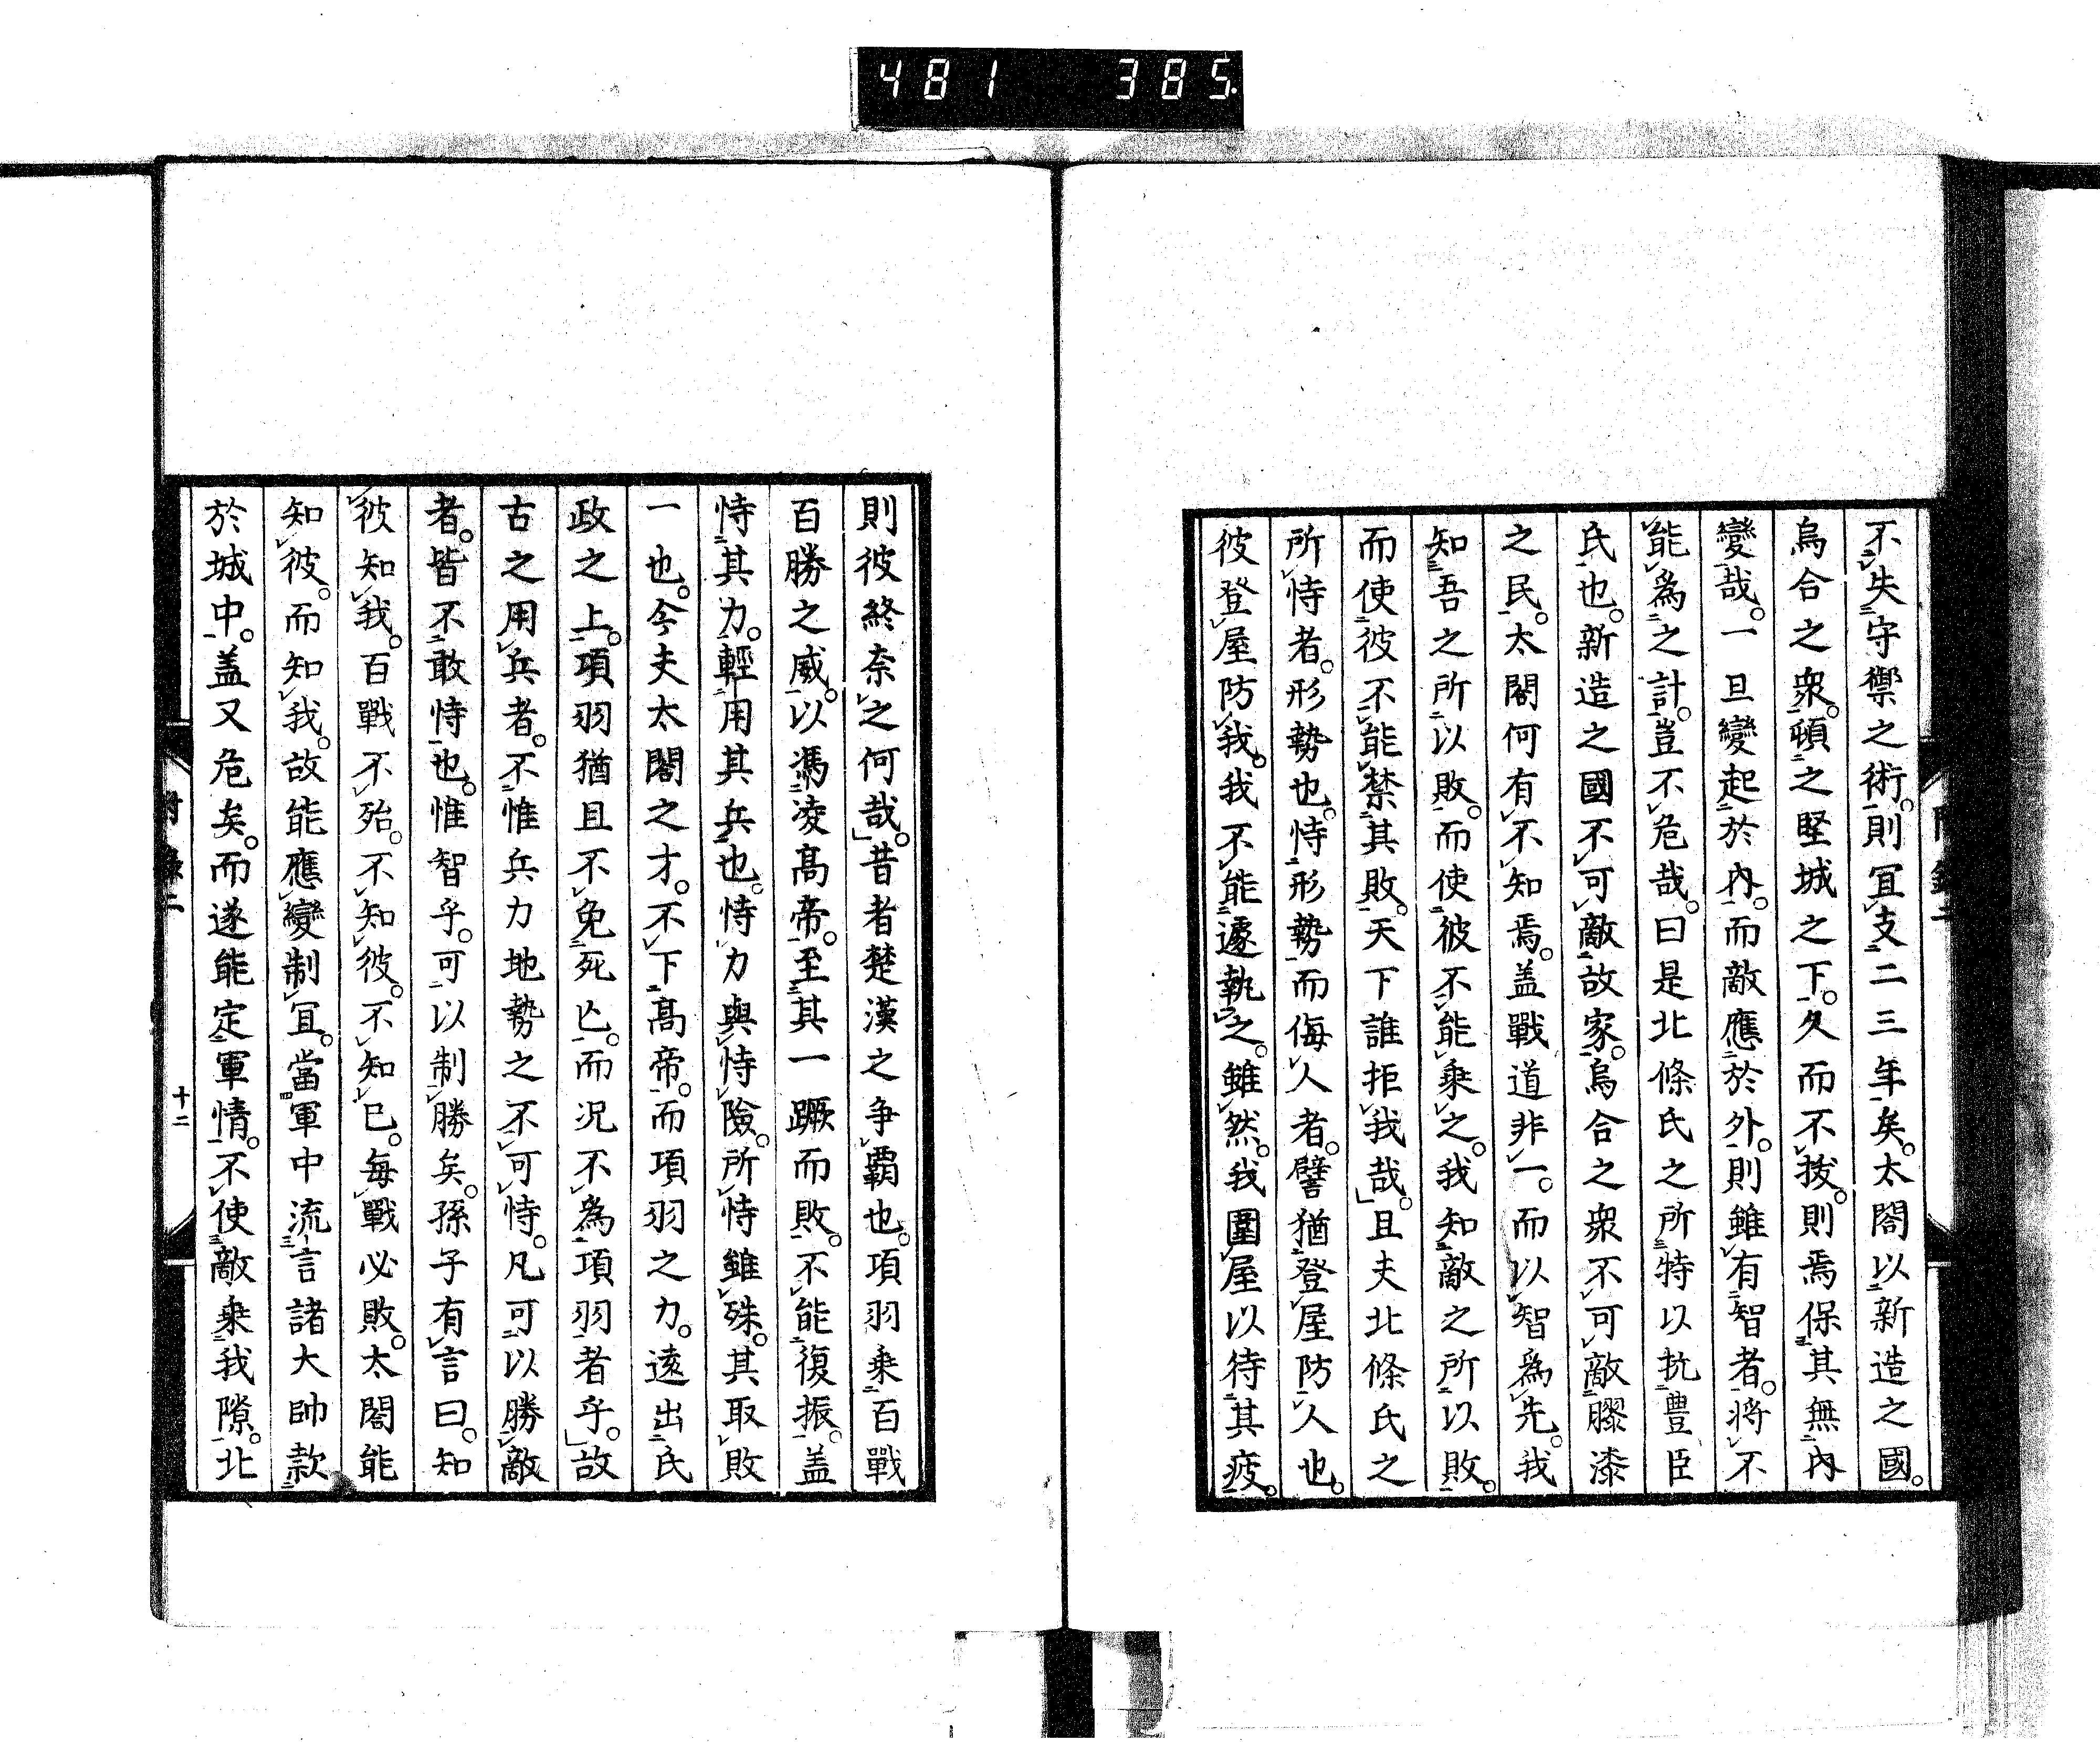 481 385
不失守禦之術。則宜支二三年矣。太閤以新造之國。
烏合之衆。頓之堅城之下。久而不拔。則焉保其無內
變哉。一旦變起於內。而敵應於外。則雖有智者。將不
能爲之計。豈不危哉。曰是北條氏之所特以抗豐臣
氏也。新造之國不可敵故家。烏合之衆不可敵膠漆
之民。太閤何有不知焉。盖戰道非一。而以智爲先。我
知吾之所以敗。而使彼不能乗之。我知敵之所以敗。
而使彼不能禁其敗。天下誰拒我哉。」且夫北條氏之
所恃者。形勢也。恃形勢而侮人者。譬猶登屋防人也。
彼登屋防我。我不能遽執之。雖然。我圍屋以待其疲。
則彼終奈之何哉。」昔者楚漢之争覇也。項羽乗百戰
百勝之威。以馮凌高帝。至其一蹶而敗。不能復振。盖
恃其力。輕用其兵也。恃力與恃險。所恃雖殊。其取敗
一也。今夫太閤之才。不下高帝。而項羽之力。遠出氏
政之上。項羽猶且不免死亾。而况不爲項羽者乎。」故
古之用兵者。不惟兵力地勢之不可恃。凡可以勝敵
者。皆不敢恃也。惟智乎。可以制勝矣。孫子有言曰。知
彼知我。百戰不殆。不知彼。不知已。每戰必敗。太閤能
知彼。而知我。故能應變制宜。當軍中流言諸大帥款
於城中。盖又危矣。而遂能定軍情。不使敵乗我隙。北
附錄二
十二